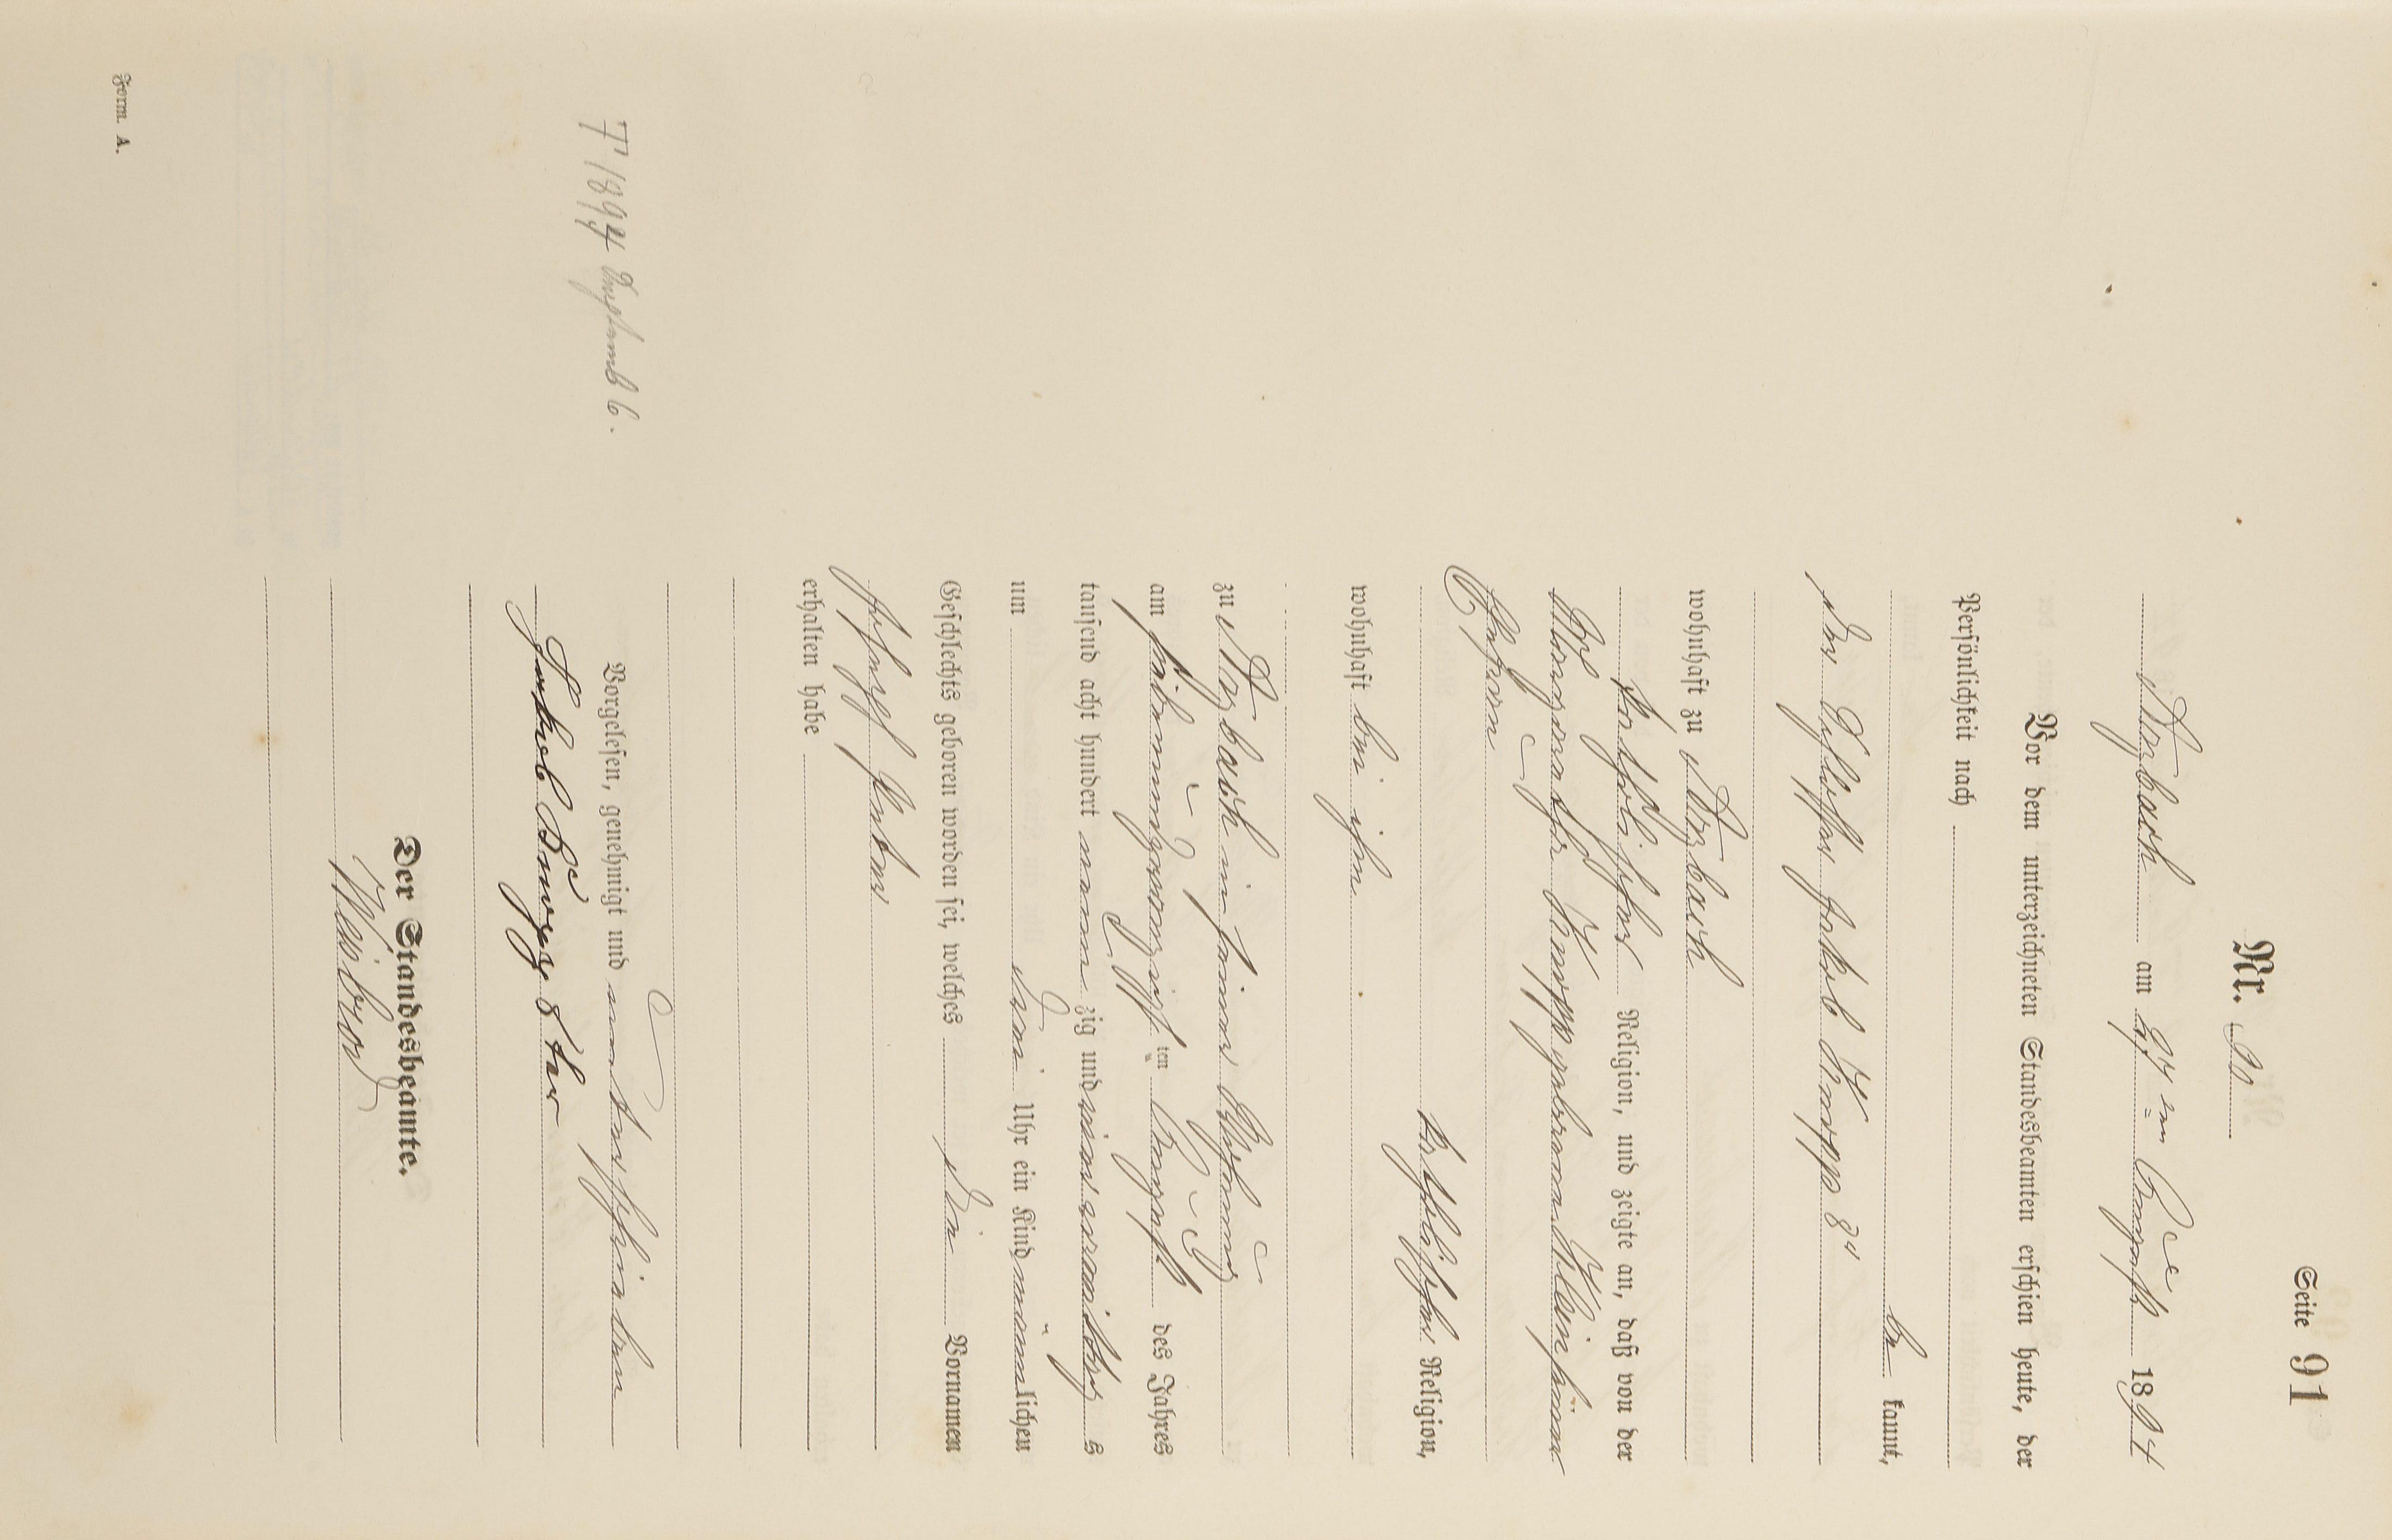 Seite 91
Nr. 90
Arzbach am 27ten August 1894
Vor dem unterzeichneten Standesbeamten erschien heute, der
Persönlichkeit nach
be kannt,
der Jakob Knopp 8t
wohnhaft zu Arzbach
katholischer Religion, und zeigte an, daß von der
Knopp geborene
Ehefrau
katholischer Religion,
wohnhaft bei ihm
zu Arzbach in seiner Wohnung
am siebenundzwanzigsten August des Jahres
tausend acht hundert neun zig und vier s
um Uhr ein Kind männlichen
Geschlechts geboren worden sei, welches die Vornamen
Joseph Anton
erhalten habe
Vorgelesen, genehmigt und unterschrieben
Jakob Knopp 8ter
Der Standesbeamte.
† 1894 September 6.
Form. A.